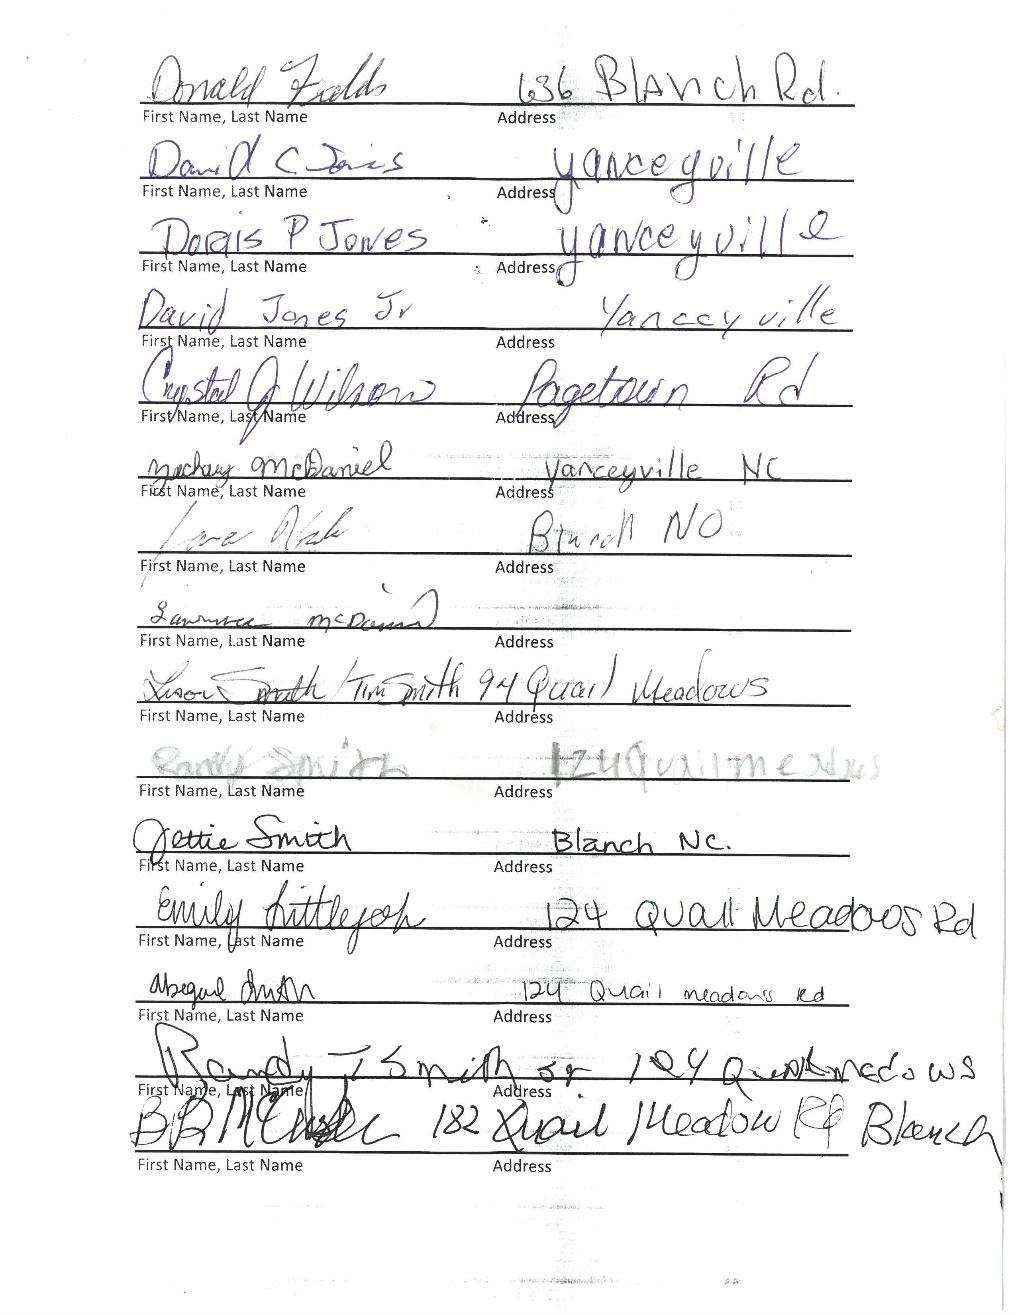 Donald Fields 636 Blanch Rd.
First Name, Last Name Address
David C Jones Yanceyville
First Name, Last Name Address
Doris P Jones Yanceyville
First Name, Last Name Address
David Jones Jr Yanceyville
First Name, Last Name Address
Crystal J Wilson Pagetown Rd
First Name, Last Name Address
Zachary McDaniel Yanceyville NC
First Name, Last Name Address
Blanch
First Name, Last Name Address
Lawrence McDaniel
First Name, Last Name Address
Smith / Tim Smith 94 Quail Meadows
First Name, Last Name Address
Randy Smith 124 Quail Meadows
First Name, Last Name Address
Jettie Smith Blanch NC.
First Name, Last Name Address
Emily Littlejohn 124 Quail Meadows Rd
First Name, Last Name Address
Abegail Smith 124 Quail meadows Rd
First Name, Last Name Address
Randy T Smith sr 124 Quail medows
First Name, Last Name Address
BB 182 Quail Meadow Rd Blanch
First Name, Last Name Address